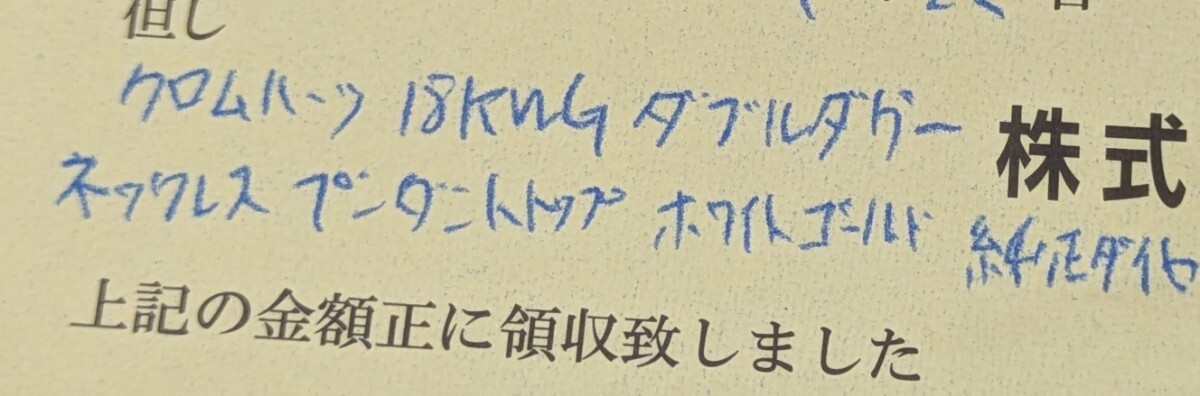 但し
クロムハーツ 18KWG ダブルダガー
株式
ネックレス ペンダントトップ ホワイトゴールド 純正ダイヤ
上記の金額正に領収致しました